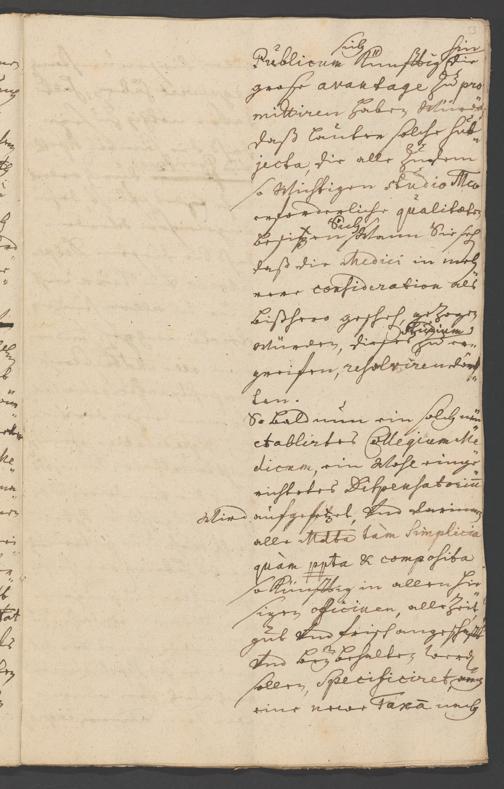 Publicum sich Künfftig hin die
große avantage zu pro
mittiren haben würde,
daß lauter solche sub¬
jecta, die alle zu dem
so wichtigen studio Med
erforderliche qualitäten
besitzen, Sich, wann Sie sehen
daß die Medici in meh¬
rere consideration als
bißhero geschehen, gezogen
würden, dieses Studium zu er¬
greifen, resolviren dörff¬
ten.
So bald nun ein solch neu
etablirtes Collegium Me¬
dicum, ein Wohl einge¬
richtetes Dispensatorium
wird aufgesetzt, und darinnen
alle tàm Simplicia
quàm ppta & composita
so Künfftig in allen hie¬
sigen officinen, alle Zeit
gut und frisch angeschafft
und beybehalten werden
sollen, Specificiret,
eine neue Taxa nach